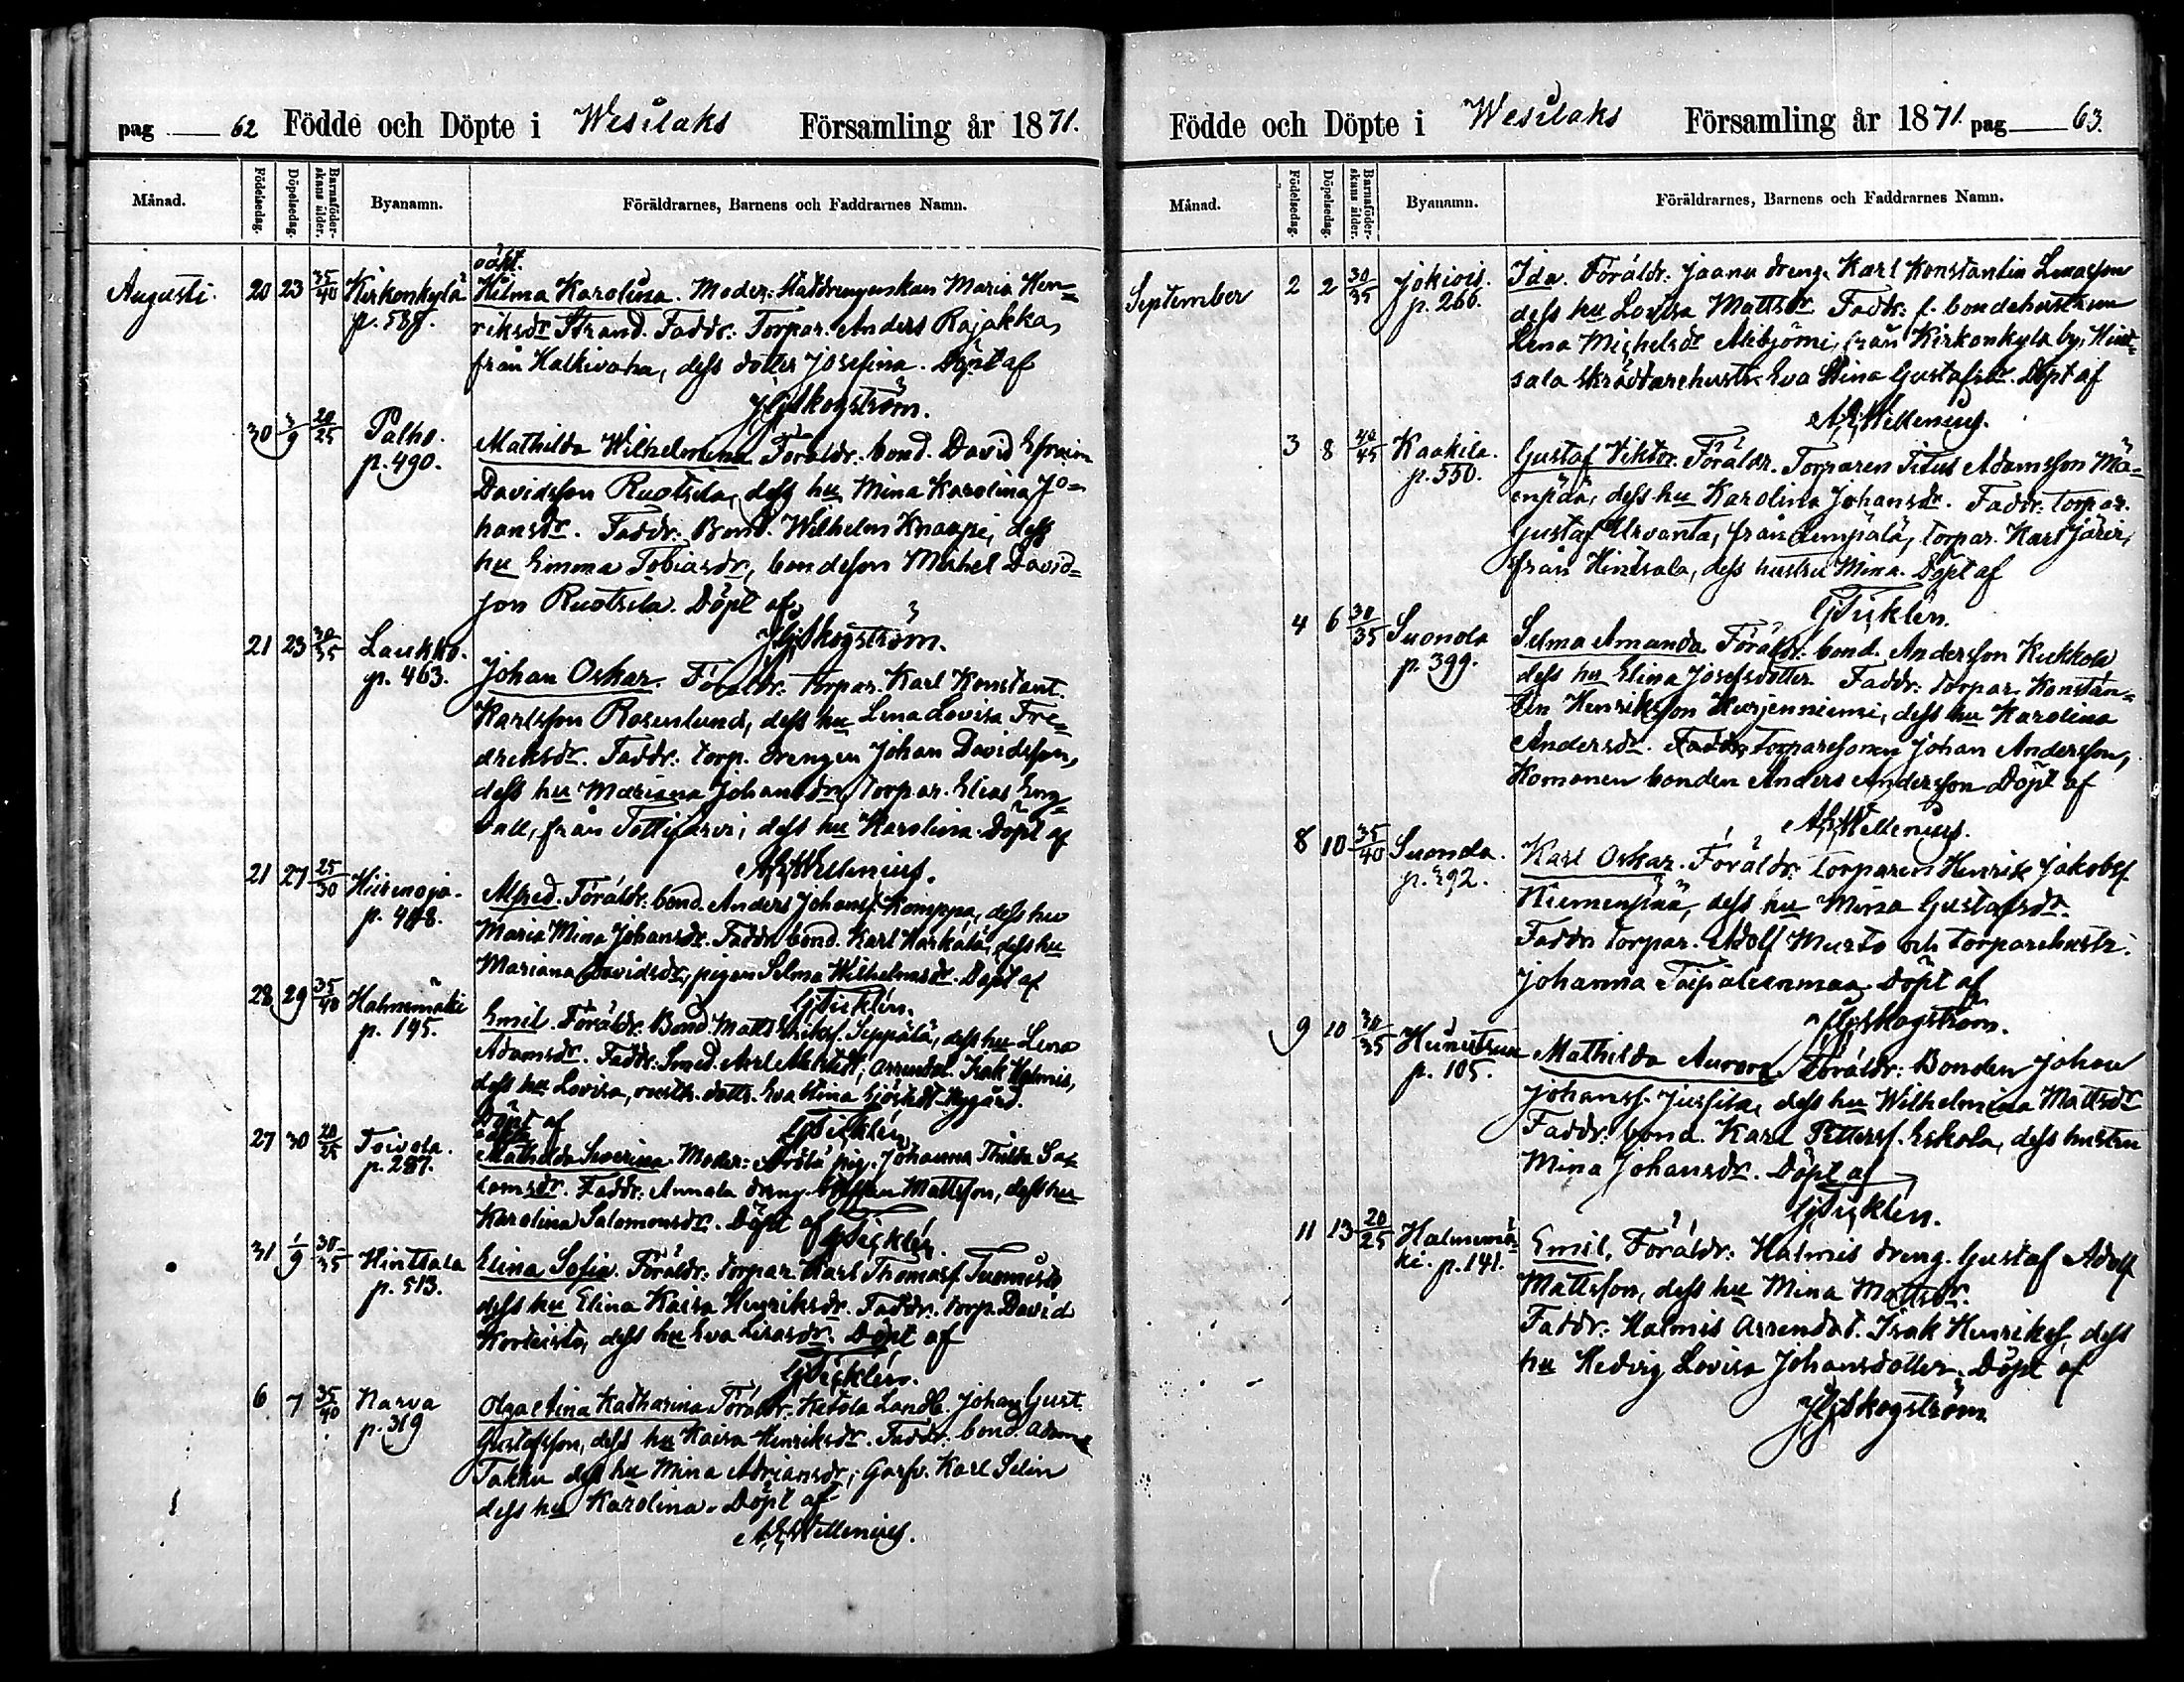 pag 62 Födde och Döpte i Wesilaks Församling år 1871.
Månad. Födelsedag. Döpelsedag. Barnaföderskans ålder. Byanamn. Föräldrarnes, Barnens och Faddrarnes Namn.
oäkt.
Augusti. 20 23 35/40 Kirkonkylä Hilma Karolina. Moder: Maria Hen=
p. riksdr Strand. Faddr: Torpar. Anders Rajakka,
från Halkivaha, dess dotter Josefina. Döpt af
Skogström.
30 3/9 20/25 Palho. Mathilda Wilhelmina Föräldr: bond. David Efraim
p. 490. Davidsson Ruotsila, dess hu Mina Karolina Jo=
hansdr. Faddr: Bond. Wilhelm Knaapi, dess
hu Emma Tobiasdr, bondeson Michel David=
son Ruotsila. Döpt af
Skogström.
21 23 30/35 Laukko. Johan Oskar. Föräldr: torpar. Karl Konstant.
p. 463. Karlsson Rosenlund, dess hu Lena Lovisa Fre=
driksdr. Faddr: torp. drengen Johan Davidsson,
dess hu Mariana Johansdr, torpar. Elias Eng=
vall, från Tottijärvi, dess hu Karolina. Döpt af
A.E. Wellenius.
21 27 25/30 Hiirenoja. Alfred. Föräldr: bond. Anders Johanss. Komppa, dess hu
p. 488. Maria Mina Johansdr. Faddr: bond. Karl Harkälä, dess hu
Mariana Davidsdr; pigan Selma Wilhelmsdr. Döpt af
G. Ticklén.
28 29 35/40 Halmemäki Emil. Föräldr: Bond. Matts Erikss. Seppälä, dess hu Lena
p. 195. Adamsdr. Faddr: Smed. Axel Ahlstedt, arrendat. Isak Halmis,
dess hu Lovisa, dottr. Eva Stina Nygård.
Döpt af G. Ticklén
oäkta
27 30 20/25 Toivola. Mathilda Severina. Moder: pig. Johanna Thilda Sa=
p. 287. lomsdr. Faddr: Annala dreng. Mattsson, dess hu
Karolina Salomonsdr. Döpt af G. Ticklén.
31 1/9 30/35 Hintsala Elina Sofia. Föräldr: torpar. Karl Thomass. Tuomisto
p. 513. dess hu Elina Kaisa Henriksdr. Faddr: torp. David
dess hu Eva Lisasdr. Döpt af
G. Ticklén.
6 7 35/40 Narva Olga Stina Katharina Föräldr: Ketola Landb. Johan Gust.
p. 319 Gustafsson, dess hu Kaisa Henriksdr. Faddr: bond. Adam
Takku dess hu Mina Adriansdr; Garfv. Karl Selin
dess hu Karolina. Döpt af
A.E. Wellenius.
Födde och Döpte i Wesilaks Församling år 1871. pag 63.
Månad. Födelsedag. Döpelsedag. Barnaföderskans ålder. Byanamn. Föräldrarnes, Barnens och Faddrarnes Namn.
September 2 2 30/35 Jokiois. Ida. Föräldr: Jaanu dreng. Karl Konstantin
p. 266. dess hu Lovisa Mattsdr Faddr: f. bondehustrun
Lena Michelsdr Alibjörni, från Kirkonkylä by, Hint=
sala skräddarehustr. Eva Stina Gustafsdr. Döpt af
A.E. Wellenius.
3 8 40/45 Kaakila. Gustaf Viktor. Föräldr. Torparen Titus Adamsson Mä=
p. 550. enpää, dess hu Karolina Johansdr. Faddr: torpar.
Gustaf Urvanta, från Lempälä, torpar. Karl Järvi,
från Hintsala, dess hustru Mina. Döpt af
G. Ticklén.
4 6 30/35 Suonola Selma Amanda. Föräldr: bond. Andersson Kukkola
p. 399. dess hu Elina Josefsdotter. Faddr: torpar. Konstan=
tin Henriksson Hurjenniemi, dess hu Karolina
Andersdr. Faddr: Torparesonen Johan Andersson,
Komonen bonden Anders Andersson Döpt af
A.E. Wellenius.
8 10 35/40 Suonola. Karl Oskar. Föräldr: torparen Henrik Jakobss.
p. 392. Niemenpää, dess hu Mina Gustafsdr.
Faddr: torpar. Adolf Murto och torparehustr.
Johanna Taipaleenmaa Döpt af
Skogström.
9 10 30/35 Hunutsuu Mathilda Aurora. Föräldr: Bonden Johan
p. 105. Johanss. Jussila, dess hu Wilhelmina Mattsdr
Faddr: bond. Karl Petterss. Eskola, dess hustru
Mina Johansdr. Döpt af
G. Ticklén.
11 13 20/25 Halmemä= Emil, Föräldr: Halmis dreng. Gustaf Adolf
ki. p. 141. Mattsson, dess hu Mina Mattsdr.
Faddr: Halmis arrendat. Isak Henrikss, dess
hu Hedvig Lovisa Johansdotter. Döpt af
Skogström